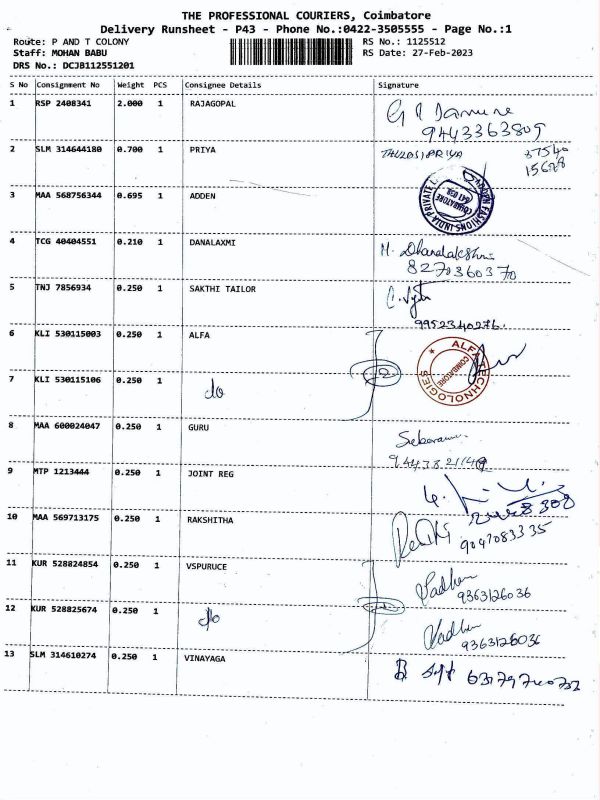 THE PROFESSIONAL COURIERS, Coimbatore
Delivery Runsheet - P43 - Phone No.:0422-3505555 - Page No.:1
Route: P AND T COLONY
Staff: MOHAN BABU
DRS No.: DCJB112551201
RS No.: 1125512
RS Date: 27-Feb-2023
S No Consignment No Weight PCS Consignee Details Signature
1 RSP 2408341 2.000 1 RAJAGOPAL
9443363809
2 SLM 314644180 0.700 1 PRIYA THULASI PRIYA 37540
15678
3 MAA 568756344 0.695 1 ADDEN
FASHIONS INDIA PRIVATE
COIMBATORE
641 038
4 TCG 40404551 0.210 1 DANALAXMI M. Dhanalakshmi
8270360370
5 TNJ 7856934 0.250 1 SAKTHI TAILOR
9952340276.
6 KLI 530115003 0.250 1 ALFA
ALFA TECHNOLOGIES
COIMBATORE
7 KLI 530115106 0.250 1 do
8 MAA 600024047 0.250 1 GURU
9443821149
9 MTP 1213444 0.250 1 JOINT REG
10 MAA 569713175 0.250 1 RAKSHITHA
9047083335
11 KUR 528824854 0.250 1 VSPURUCE
9363126036
12 KUR 528825674 0.250 1 do
9363126036
13 SLM 314610274 0.250 1 VINAYAGA